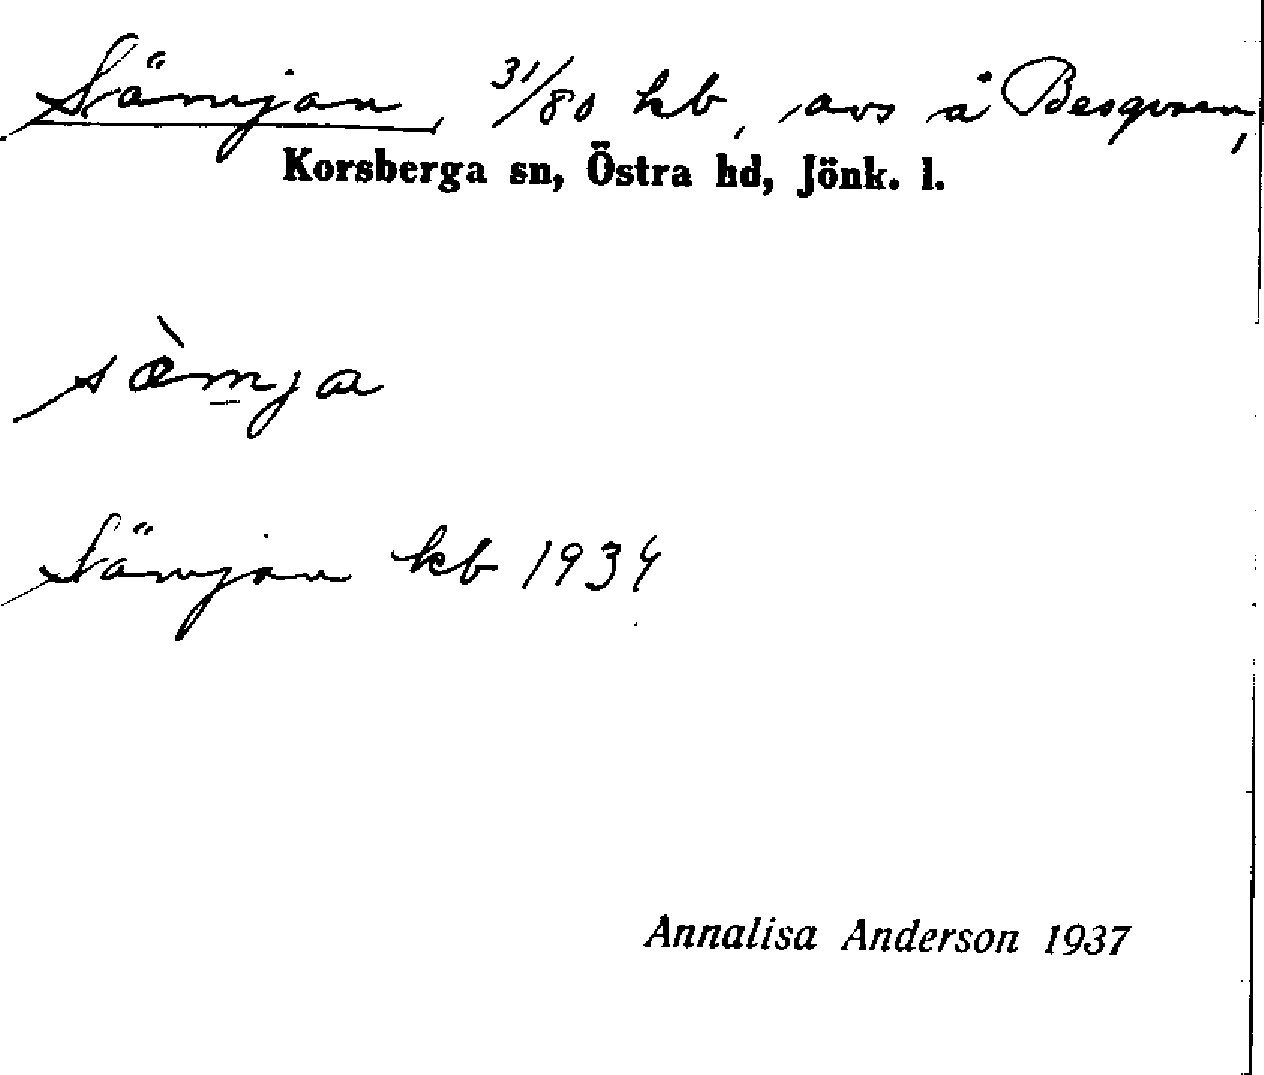 Sämjan, 31/80 kb, avs å Besqvarn,
Korsberga sn, Östra hd, Jönk. l.
sæ̀mja
Sämjan kb 1934
Annalisa Anderson 1937